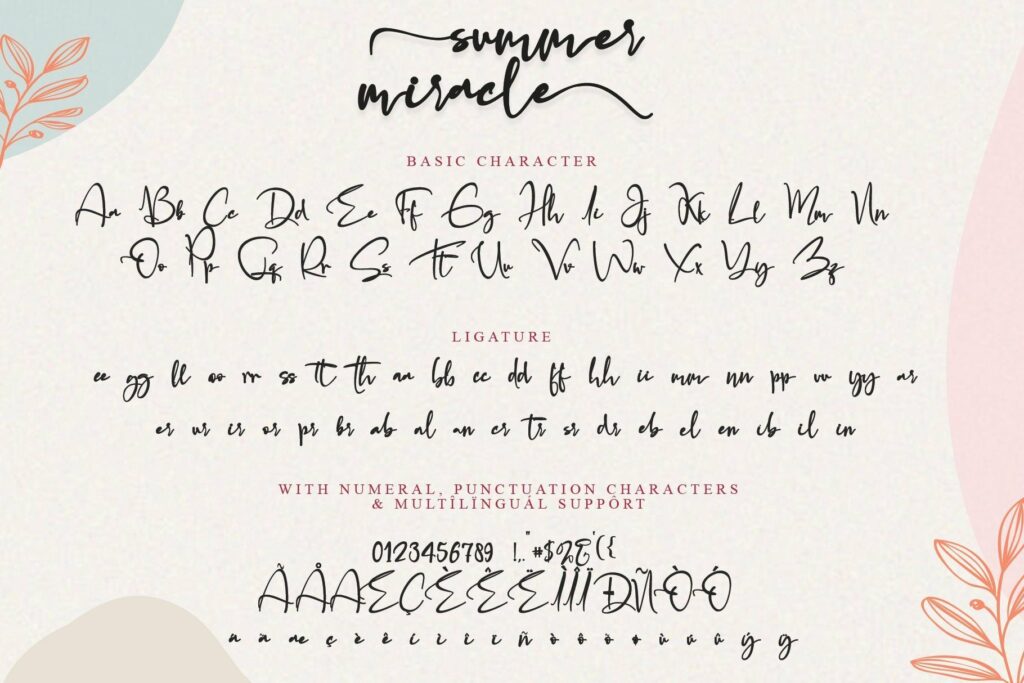 summer
miracle
BASIC CHARACTER
Aa Bb Cc Dd Ee Ff Gg Hh Ii Jj Kk Ll Mm Nn
Oo Pp Qq Rr Ss Tt Uu Vv Ww Xx Yy Zz
LIGATURE
ee gg ll oo rr ss tt th aa bb cc dd ff hh ii mm nn pp vv yy ar
er ur ir or pr br ab al an cr tr sr dr eb el en ib il in
WITH NUMERAL, PUNCTUATION CHARACTERS
& MULTÎLÏNGUÁL SUPPÔRT
0123456789 !,."#$%&'({
ÃÅÆÇÈÊËÌÎÏÐÑÒÓ
æ ç è ê í ì î ï ñ ò ô ö ù û ý